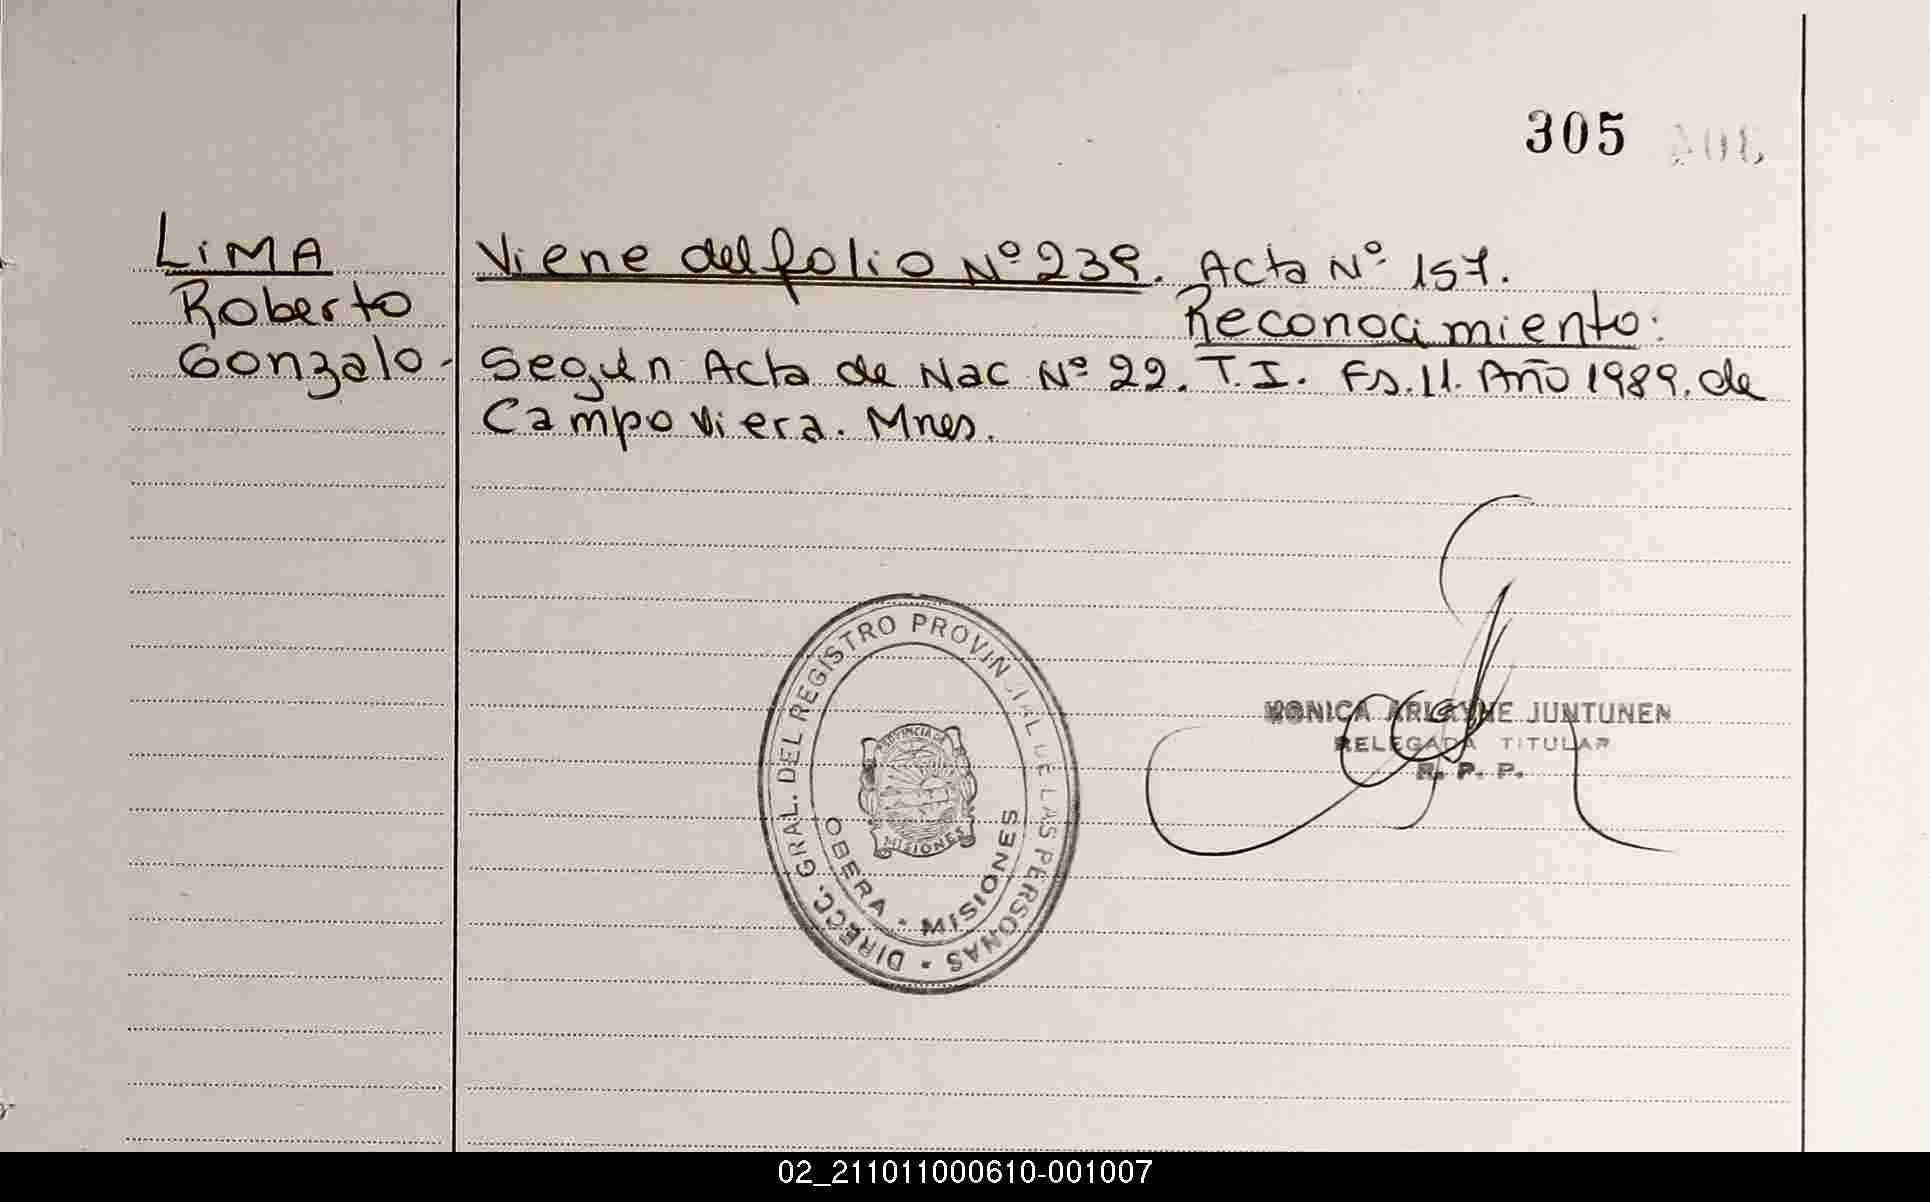 305
LiMA
Roberto
Gonzalo -
Viene del folio Nº 239. Acta Nº 157.
Reconocimiento:
Según Acta de Nac Nº 22. T.I. Fs. 11. Año 1989. de
Campo Viera. Mnes.
DIRECC. GRAL. DEL REGISTRO PROVINCIAL DE LAS PERSONAS
PROVINCIA DE
MISIONES
OBERA - MISIONES
MONICA ARLAYNE JUNTUNEN
DELEGADA TITULAR
R. P. P.
02_211011000610-001007